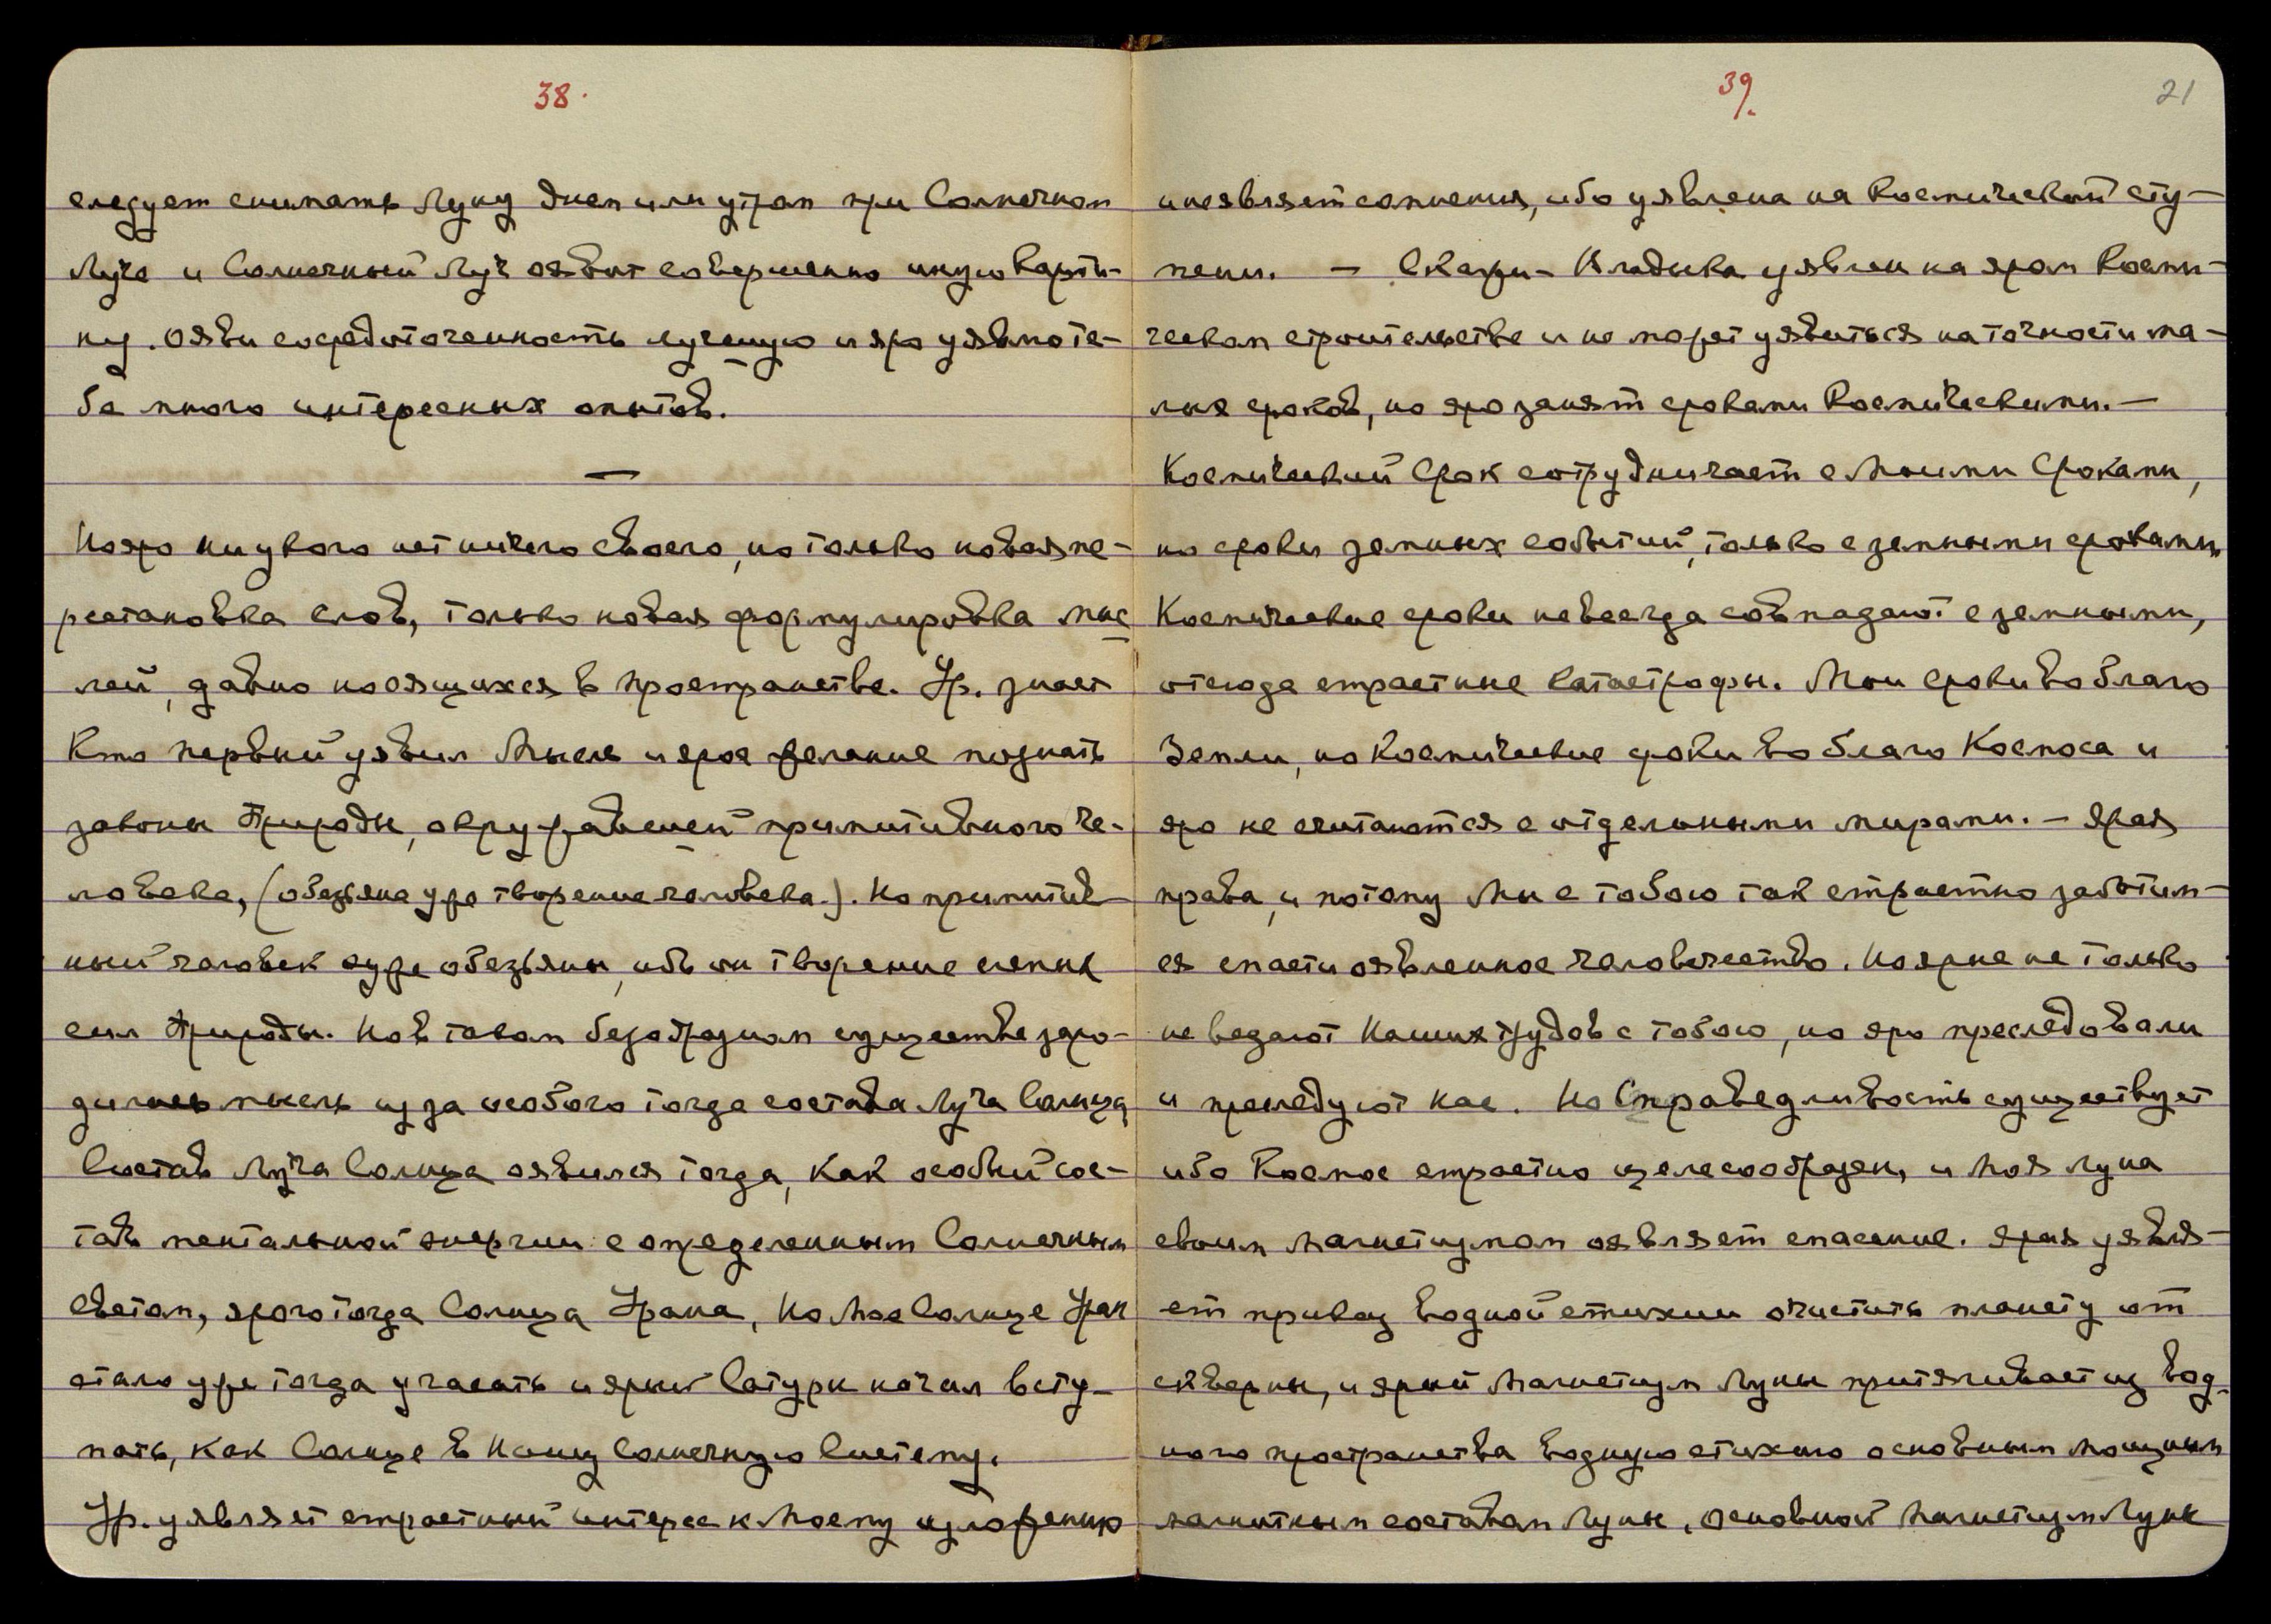 38.
следует снимать Луну днем или утром при Солнечном
Луче и Солнечный Луч оявит совершенно иную карти-
ну. Ояви сосредоточенность лучшую и яро уявлю те-
бе много интересных опытов.
—
Но яро ни у кого нет ничего своего, но только новая пе-
рестановка слов, только новая формулировка мыс
лей, давно носящихся в пространстве. Ур. знает
Кто первый уявил Мысль и ярое желание познать
законы Природы, окружавшей примитивного че-
ловека, (обезьяна уже творение человека.). Но примитив-
ный человек хуже обезьяны, ибо он творение слепых
сил Природы. Но в таком безобразном существе заро-
дилась мысль из за особого тогда состава Луча Солнца,
Состав Луча Солнца оявился тогда, как особый сос-
тав ментальной энергии с определенным Солнечным
светом, ярого тогда Солнца Урана, Но Мое Солнце Уран
стало уже тогда угасать и ярый Сатурн начал всту-
пать, как Солнце в Нашу Солнечную Систему.
Ур. уявляет страстный интерес к Моему изложению
39.
21
и не являет сомнения, ибо уявлена на Космической сту-
пени. — Скажи - Владыка уявлен на яром Косми-
ческом строительстве и не может уявиться на точности ма-
лых сроков, но яро занят сроками Космическими. —
Космический Срок сотрудничает с Моими Сроками,
но сроки земных событий, только с земными сроками.
Космические сроки не всегда совпадают с земными,
отсюда страстные катастрофы. Мои сроки во благо
Земли, но Космические сроки во благо Космоса и
яро не считаются с отдельными мирами. — Ярая
права, и потому Мы с тобою так страстно заботим-
ся спасти оявленное человечество. Но ярые не только
не ведают Наших трудов с тобою, но яро преследовали
и преследуют нас. Но Справедливость существует
ибо Космос страстно целесообразен, и Моя Луна
своим Магнетизмом оявляет спасение. Ярая уявля-
ет приказ водной стихии очистить планету от
скверны, и ярый Магнетизм Луны притягивает из вод-
ного пространства водную стихию основным мощным
магнитным составом Луны. Основной Магнетизм Луны